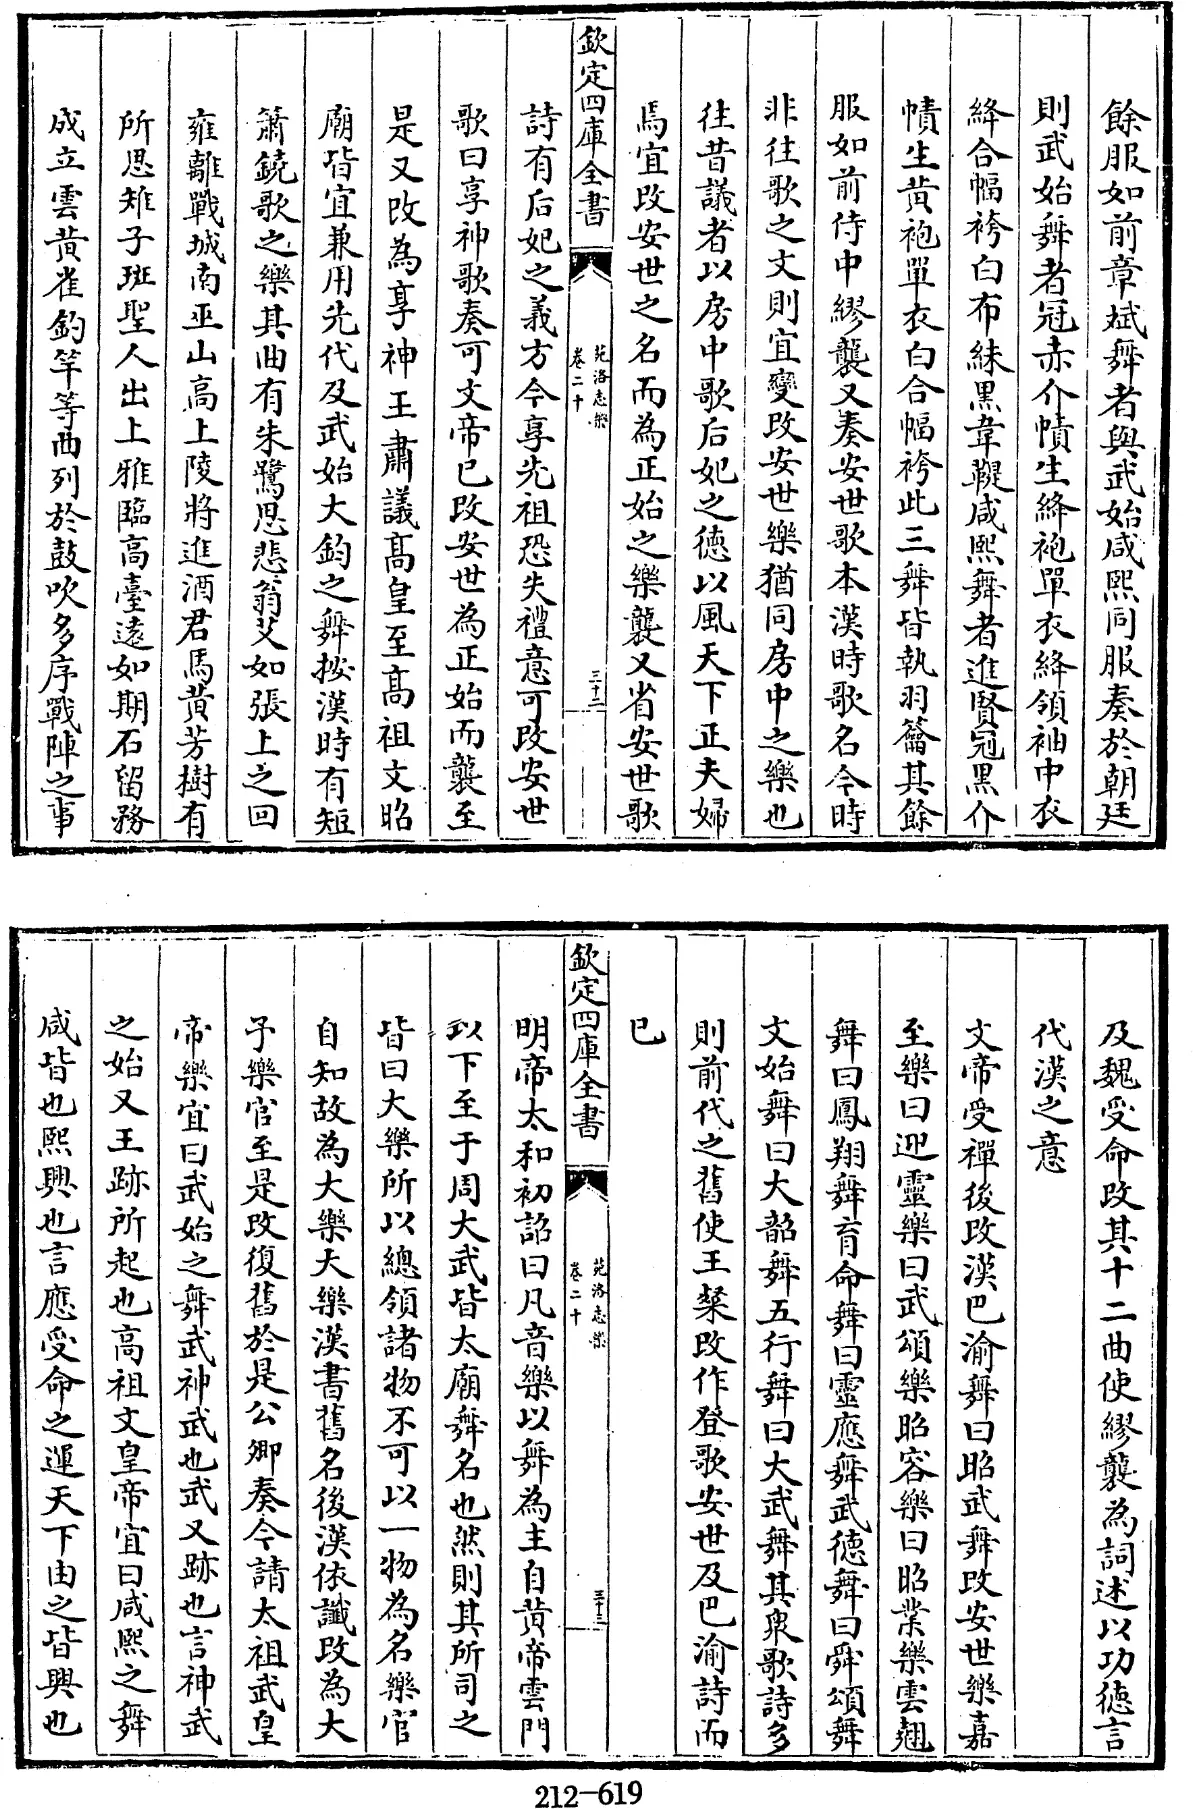 餘服如前章斌舞者與武始咸熙同服奏於朝廷
則武始舞者冠赤介幘生絳袍單衣絳領袖中衣
絳合幅袴白布絑黒韋鞮咸熙舞者進賢冠黒介
幘生黄袍單衣白合幅袴此三舞皆執羽籥其餘
服如前侍中繆襲又奏安世歌本漢時歌名今時
非往歌之文則宜變改安世樂猶同房中之樂也
往昔議者以房中歌后妃之徳以風天下正夫婦
焉宜改安世之名而為正始之樂襲又省安世歌
欽定四庫全書
苑洛志樂
卷二十
三十二
詩有后妃之義方今享先祖恐失禮意可改安世
歌曰享神歌奏可文帝已改安世為正始而襲至
是又改為享神王肅議髙皇至髙祖文昭
廟皆宜兼用先代及武始大鈞之舞按漢時有短
簫鐃歌之樂其曲有朱鷺思悲翁艾如張上之回
雍離戰城南巫山高上陵將進酒君馬黄芳樹有
所思雉子班聖人出上雅臨高臺遠如期石留務
成立雲黄雀釣竿等曲列於鼓吹多序戰陣之事
及魏受命改其十二曲使繆襲為詞述以功徳言
代漢之意
文帝受禪後改漢巴渝舞曰昭武舞改安世樂嘉
至樂曰迎靈樂曰武頌樂昭容樂曰昭業樂雲翹
舞曰鳳翔舞育命舞曰靈應舞武徳舞曰舜頌舞
文始舞曰大韶舞五行舞曰大武舞其衆歌詩多
則前代之舊使王粲改作登歌安世及巴渝詩而
已
欽定四庫全書
苑洛志樂
卷二十
三十三
明帝太和初詔曰凡音樂以舞為主自黄帝雲門
以下至于周大武皆太廟舞名也然則其所司之
皆曰大樂所以總領諸物不可以一物為名樂官
自知故為大樂大樂漢書舊名後漢依讖改為大
予樂官至是改復舊於是公卿奏今請太祖武皇
帝樂宜曰武始之舞武神武也武又跡也言神武
之始又王跡所起也高祖文皇帝宜曰咸熙之舞
咸皆也熙興也言應受命之運天下由之皆興也
212-619